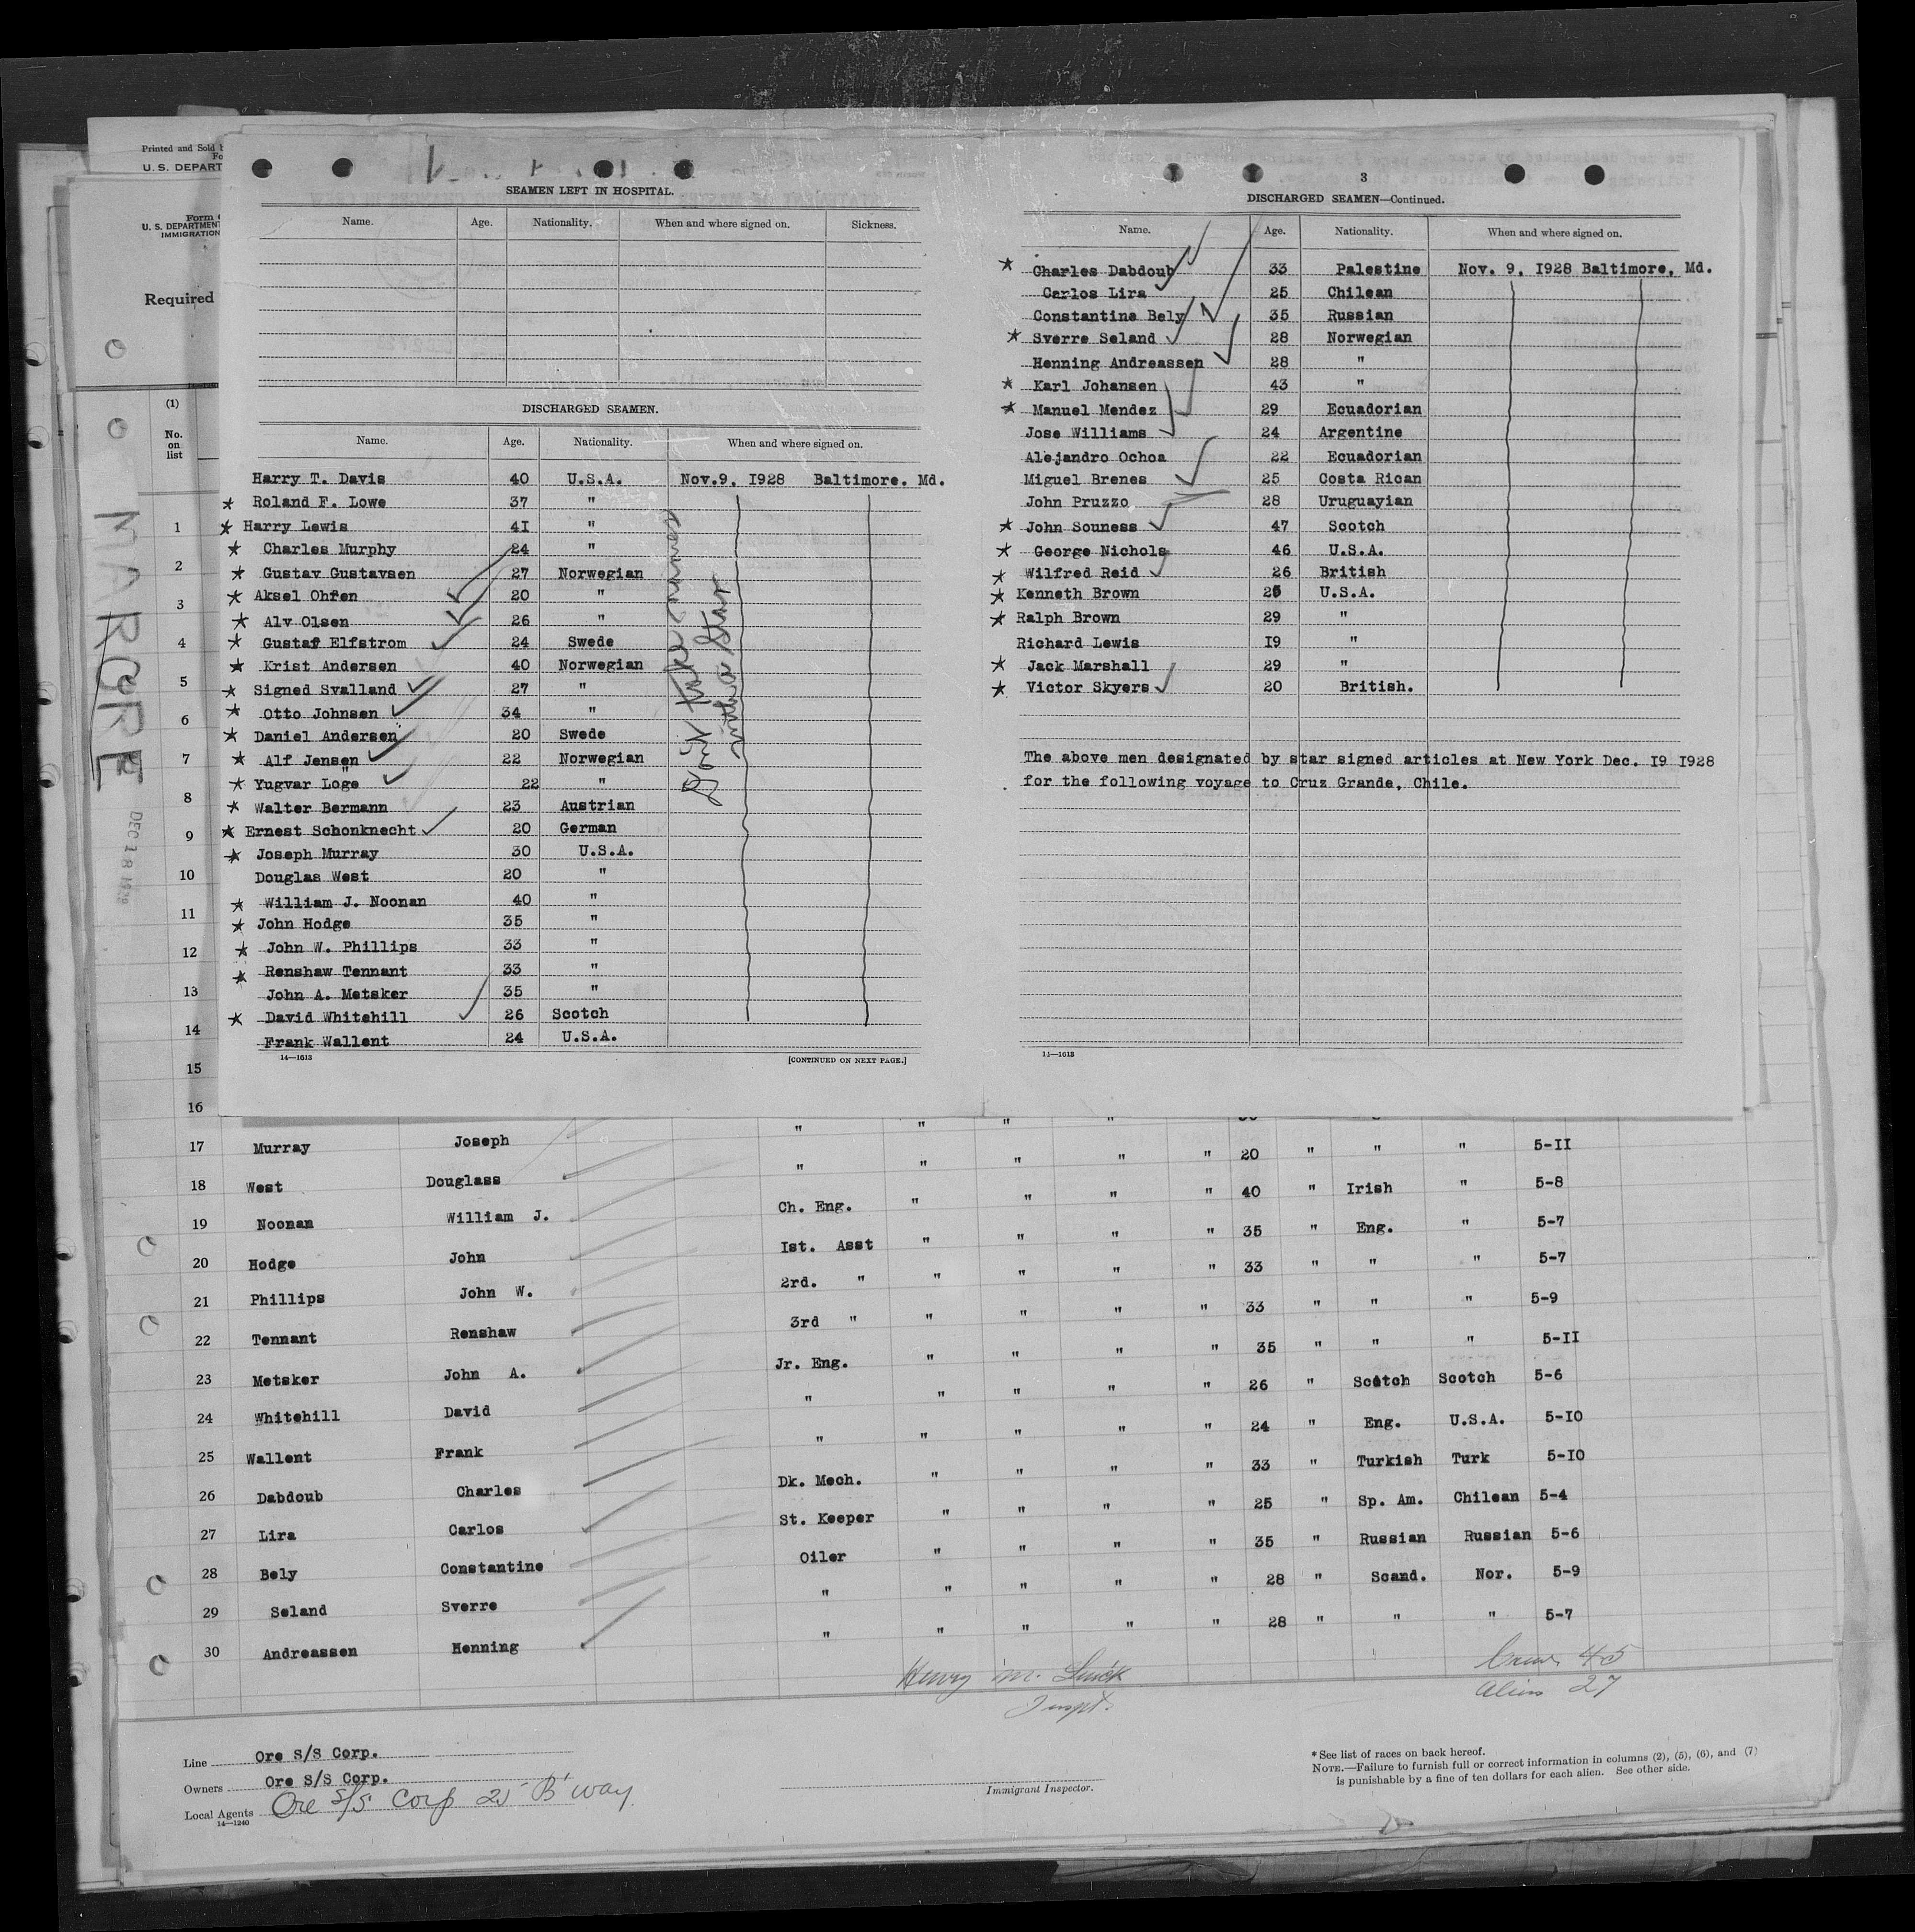 Printed and Sold
U.S. DEPART
Form
U. S. DEPARTMEN
IMMIGRATION
Required
(1)
No.
on
list
MARORE
DEC 18 1928
1
2
3
4
5
6
7
8
9
10
11
12
13
14
15
16
SEAMEN LEFT IN HOSPITAL.
Name. Age. Nationality. When and where signed on. Sickness.
DISCHARGED SEAMEN.
Name. Age. Nationality. When and where signed on.
Harry T. Davis 40 U.S.A. Nov.9, I928 Baltimore. Md.
★ Roland F. Lowe 37 "
★ Harry Lewis 4I "
★ Charles Murphy 24 "
★ Gustav Gustavsen 27 Norwegian
★ Aksel Ohren 20 "
★ Alv Olsen 26 "
★ Gustaf Elfstrom 24 Swede
★ Krist Andersen 40 Norwegian
★ Signed Svalland 27 "
★ Otto Johnsen 34 "
★ Daniel Andersen 20 Swede
★ Alf Jensen 22 Norwegian
★ Yugvar Loge 22 "
★ Walter Bermann 23 Austrian
★ Ernest Schonknecht 20 German
★ Joseph Murray 30 U.S.A.
Douglas West 20 "
★ William J. Noonan 40 "
★ John Hodge 35 "
★ John W. Phillips 33 "
★ Renshaw Tennant 33 "
John A. Metsker 35 "
★ David Whitehill 26 Scotch
Frank Wallent 24 U.S.A.
14—1613 [CONTINUED ON NEXT PAGE.]
3
DISCHARGED SEAMEN—Continued.
Name. Age. Nationality. When and where signed on.
★ Charles Dabdoub 33 Palestine Nov. 9, I928 Baltimore, Md.
Carlos Lira 25 Chilean
Constantine Bely 35 Russian
★ Sverre Seland 28 Norwegian
Henning Andreassen 28 "
★ Karl Johansen 43 "
★ Manuel Mendez 29 Ecuadorian
Jose Williams 24 Argentine
Alejandro Ochoa 22 Ecuadorian
Miguel Brenes 25 Costa Rican
John Pruzzo 28 Uruguayian
★ John Souness 47 Scotch
★ George Nichols 46 U.S.A.
★ Wilfred Reid 26 British
★ Kenneth Brown 25 U.S.A.
★ Ralph Brown 29 "
Richard Lewis I9 "
★ Jack Marshall 29 "
★ Victor Skyers 20 British.
The above men designated by star signed articles at New York Dec. I9 I928
for the following voyage to Cruz Grande, Chile.
14—1613
17 Murray Joseph " " " "
18 West Douglass " " " " " 20 " " " 5-II
19 Noonan William J. Ch. Eng. " " " " 40 " Irish " 5-8
20 Hodge John Ist. Asst " " " " 35 " Eng. " 5-7
21 Phillips John W. 2rd. " " " " " 33 " " " 5-7
22 Tennant Renshaw 3rd " " " " " 33 " " " 5-9
23 Metsker John A. Jr. Eng. " " " " 35 " " " 5-II
24 Whitehill David " " " " " 26 " Scotch Scotch 5-6
25 Wallent Frank " " " " " 24 " Eng. U.S.A. 5-IO
26 Dabdoub Charles Dk. Mech. " " " " 33 " Turkish Turk 5-IO
27 Lira Carlos St. Keeper " " " " 25 " Sp. Am. Chilean 5-4
28 Bely Constantine Oiler " " " " 35 " Russian Russian 5-6
29 Seland Sverre " " " " " 28 " Scand. Nor. 5-9
30 Andreassen Henning " " " " " 28 " " " 5-7
Henry M. Luick
Inspt.
Crew 45
Alien 27
Line Ore S/S Corp.
Owners Ore S/S Corp.
Local Agents Ore S/S Corp 25 B'way
14—1240
Immigrant Inspector.
* See list of races on back hereof.
NOTE.—Failure to furnish full or correct information in columns (2), (5), (6), and (7)
is punishable by a fine of ten dollars for each alien. See other side.